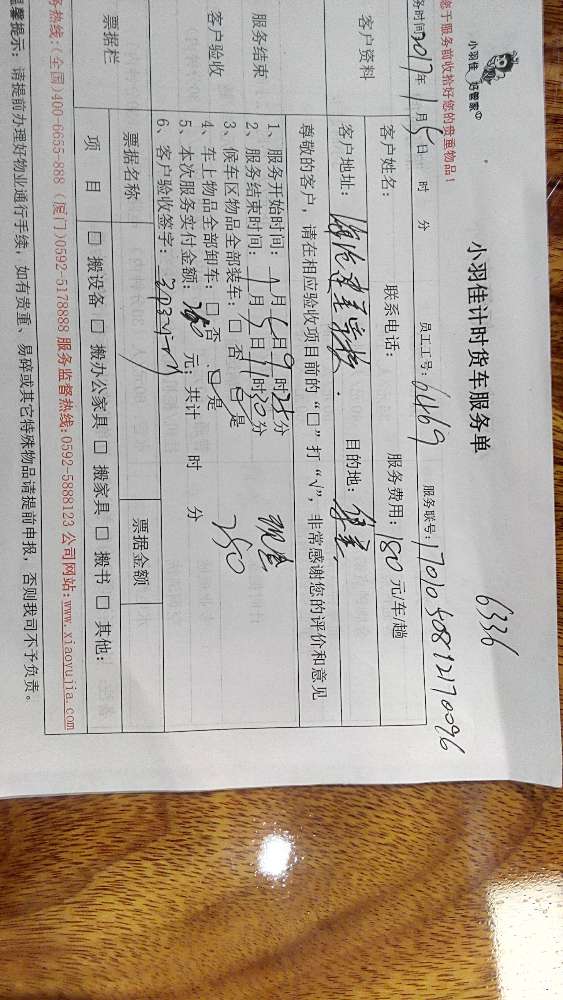 小羽佳 好管家
您于服务前收拾好您的贵重物品!
6336
小羽佳计时货车服务单
务时间2017年1月5日 时 分 员工工号:6469 服务联号:1701050812170096
客户资料
客户姓名: 联系电话: 服务费用:180元/车/趟
客户地址: 目的地:集美
尊敬的客户,请在相应验收项目前的“□”打“√”,非常感谢您的评价和意见
服务结束
客户验收
1、服务开始时间: 月 日9时25分
2、服务结束时间:1月5日11时30分
3、候车区物品全部装车:□否 □是
4、车上物品全部卸车:□否 □是
5、本次服务实付金额: 元,共计 时 分
6、客户验收签字:
现金
250
票据栏
票据名称 票据金额
项目 □搬设备 □搬办公家具 □搬家具 □搬书 □其他:
务热线:(全国)400-6655-888 (厦门)0592-5178888 服务监督热线:0592-5888123 公司网站:www.xiaoyujia.com
温馨提示:请提前办理好物业通行手续,如有贵重、易碎或其它特殊物品请提前申报,否则我司不予负责。